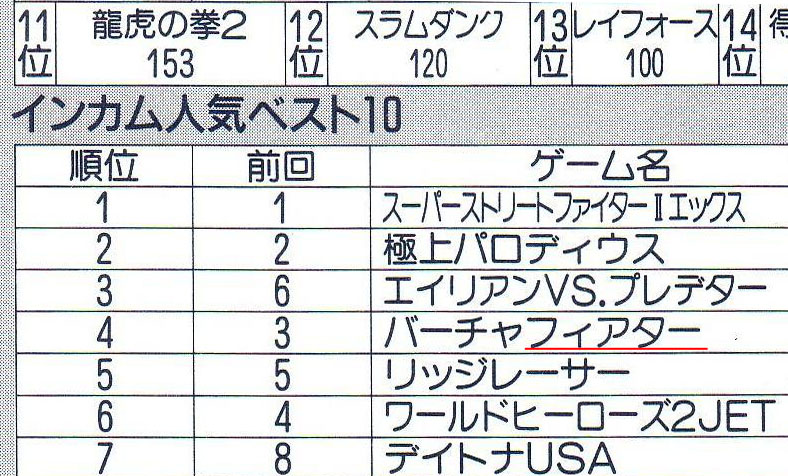 11位 龍虎の拳2 153 12位 スラムダンク 120 13位 レイフォース 100 14位 得
インカム人気ベスト10
順位 前回 ゲーム名
1 1 スーパーストリートファイターⅡエックス
2 2 極上パロディウス
3 6 エイリアンVS.プレデター
4 3 バーチャフィアター
5 5 リッジレーサー
6 4 ワールドヒーローズ2JET
7 8 デイトナUSA